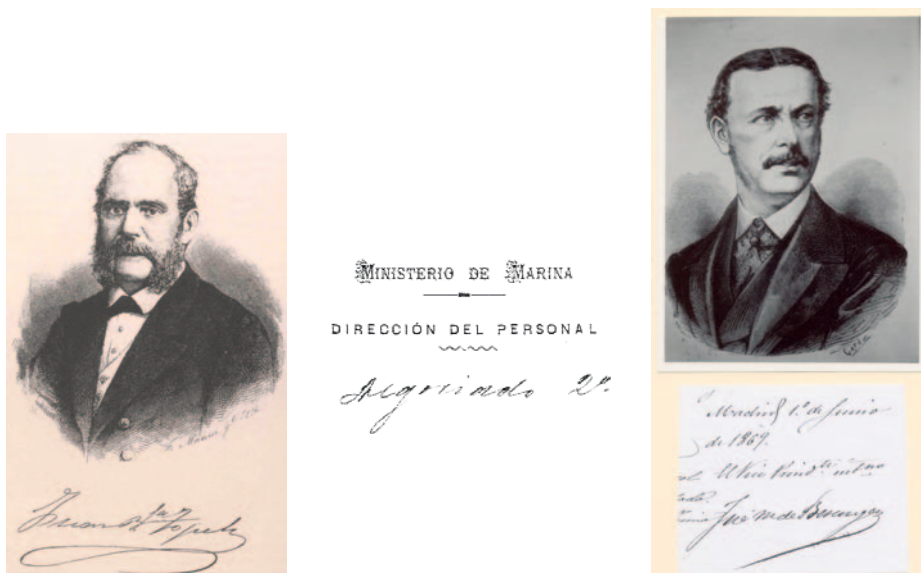 Juan Bta Topete
MINISTERIO DE MARINA
DIRECCIÓN DEL PERSONAL
Negociado 2º.
Madrid 1º. de Junio
de 1869.
El Vice Presidte intno
José M de Beranger